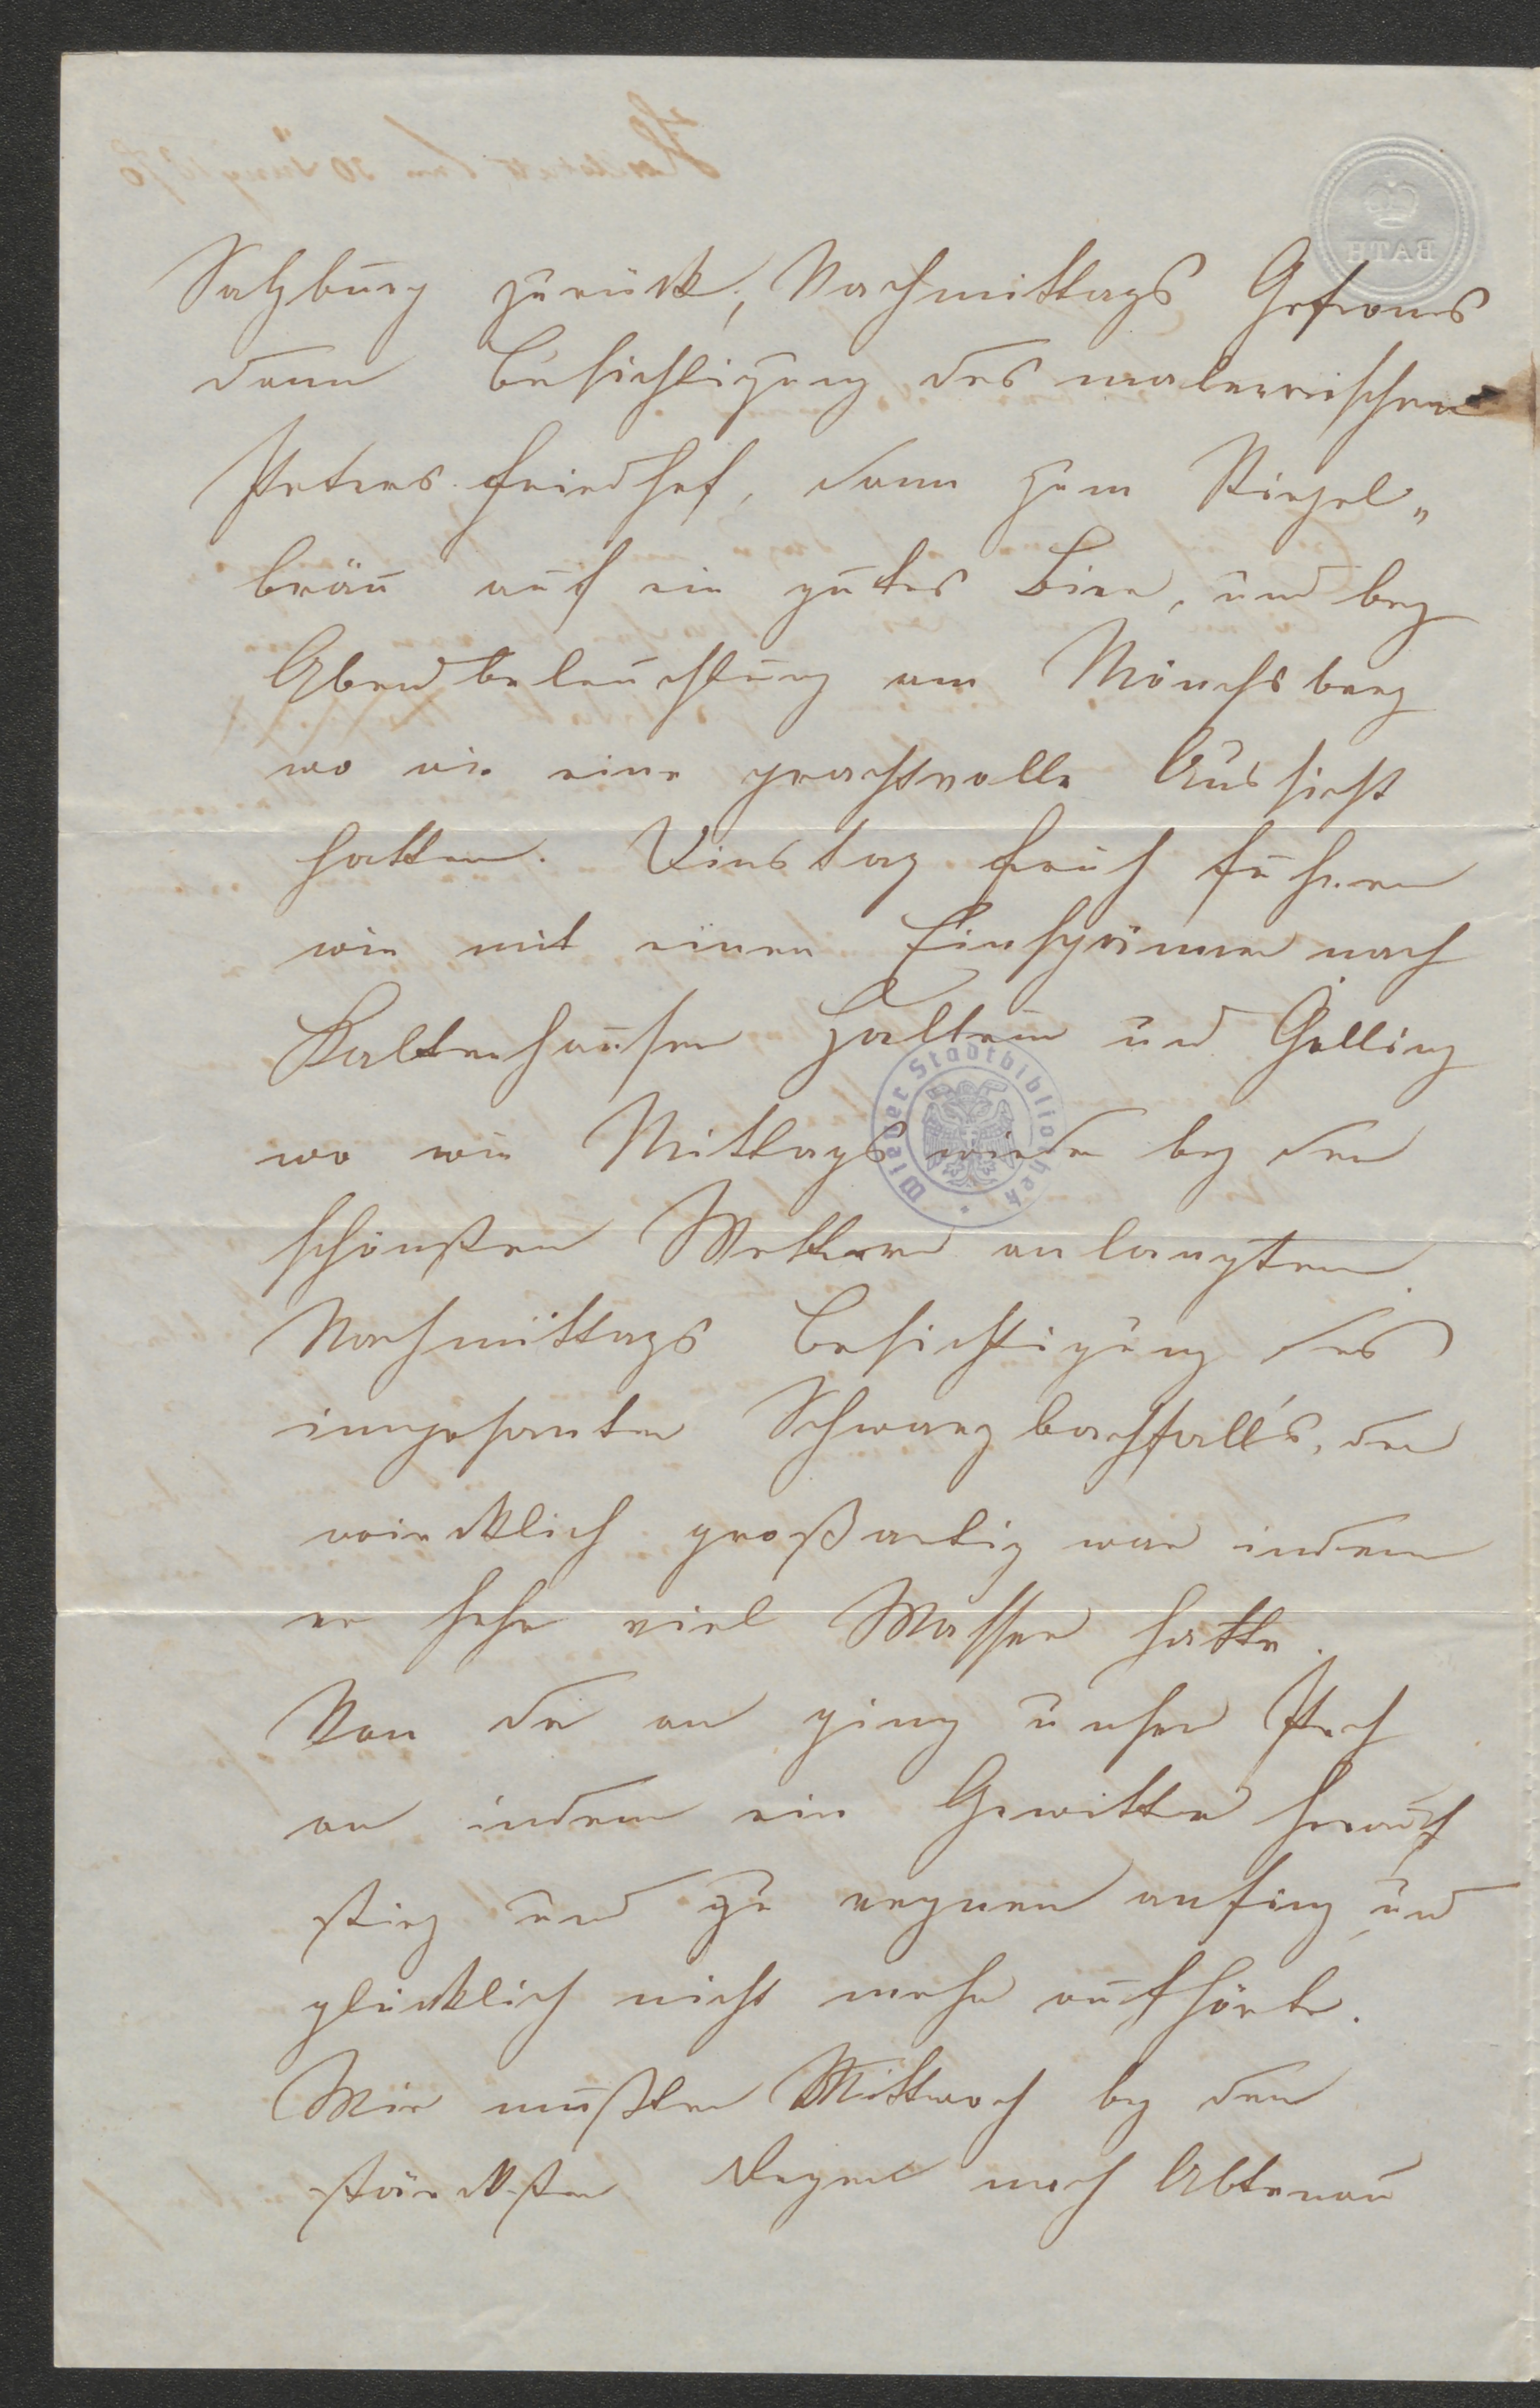 BATH
Salzburg zurück, Nachmittags Gefrornes
dann Besichtigung des malerischen
Peters-friedhof, dann zum Stiegel„
bräu auf ein gutes Bier, und bey
Abendbeleuchtung am Mönchsberg
wo wir eine prachtvolle Aussicht
hatten. Dinstag früh fuhren
wir mit einen Einspänner nach
Kaltenhausen Hallein und Golling
wo wir Mittags wieder bey den
schönsten Wetter anlangten.
Nachmittags Besichtigung des
imposanten Schwarzbachfall's, der
wircklich großartig war indem
er sehr viel Wasser hatte.
Von da an ging unser Pech
an indem ein Gewitter herauf
stieg und zu regnen anfing und
glücklich nicht mehr aufhörte.
Wir mußten Mittwoch bey den
stärcksten Regen nach Abtenau
Wiener Stadtbibliothek